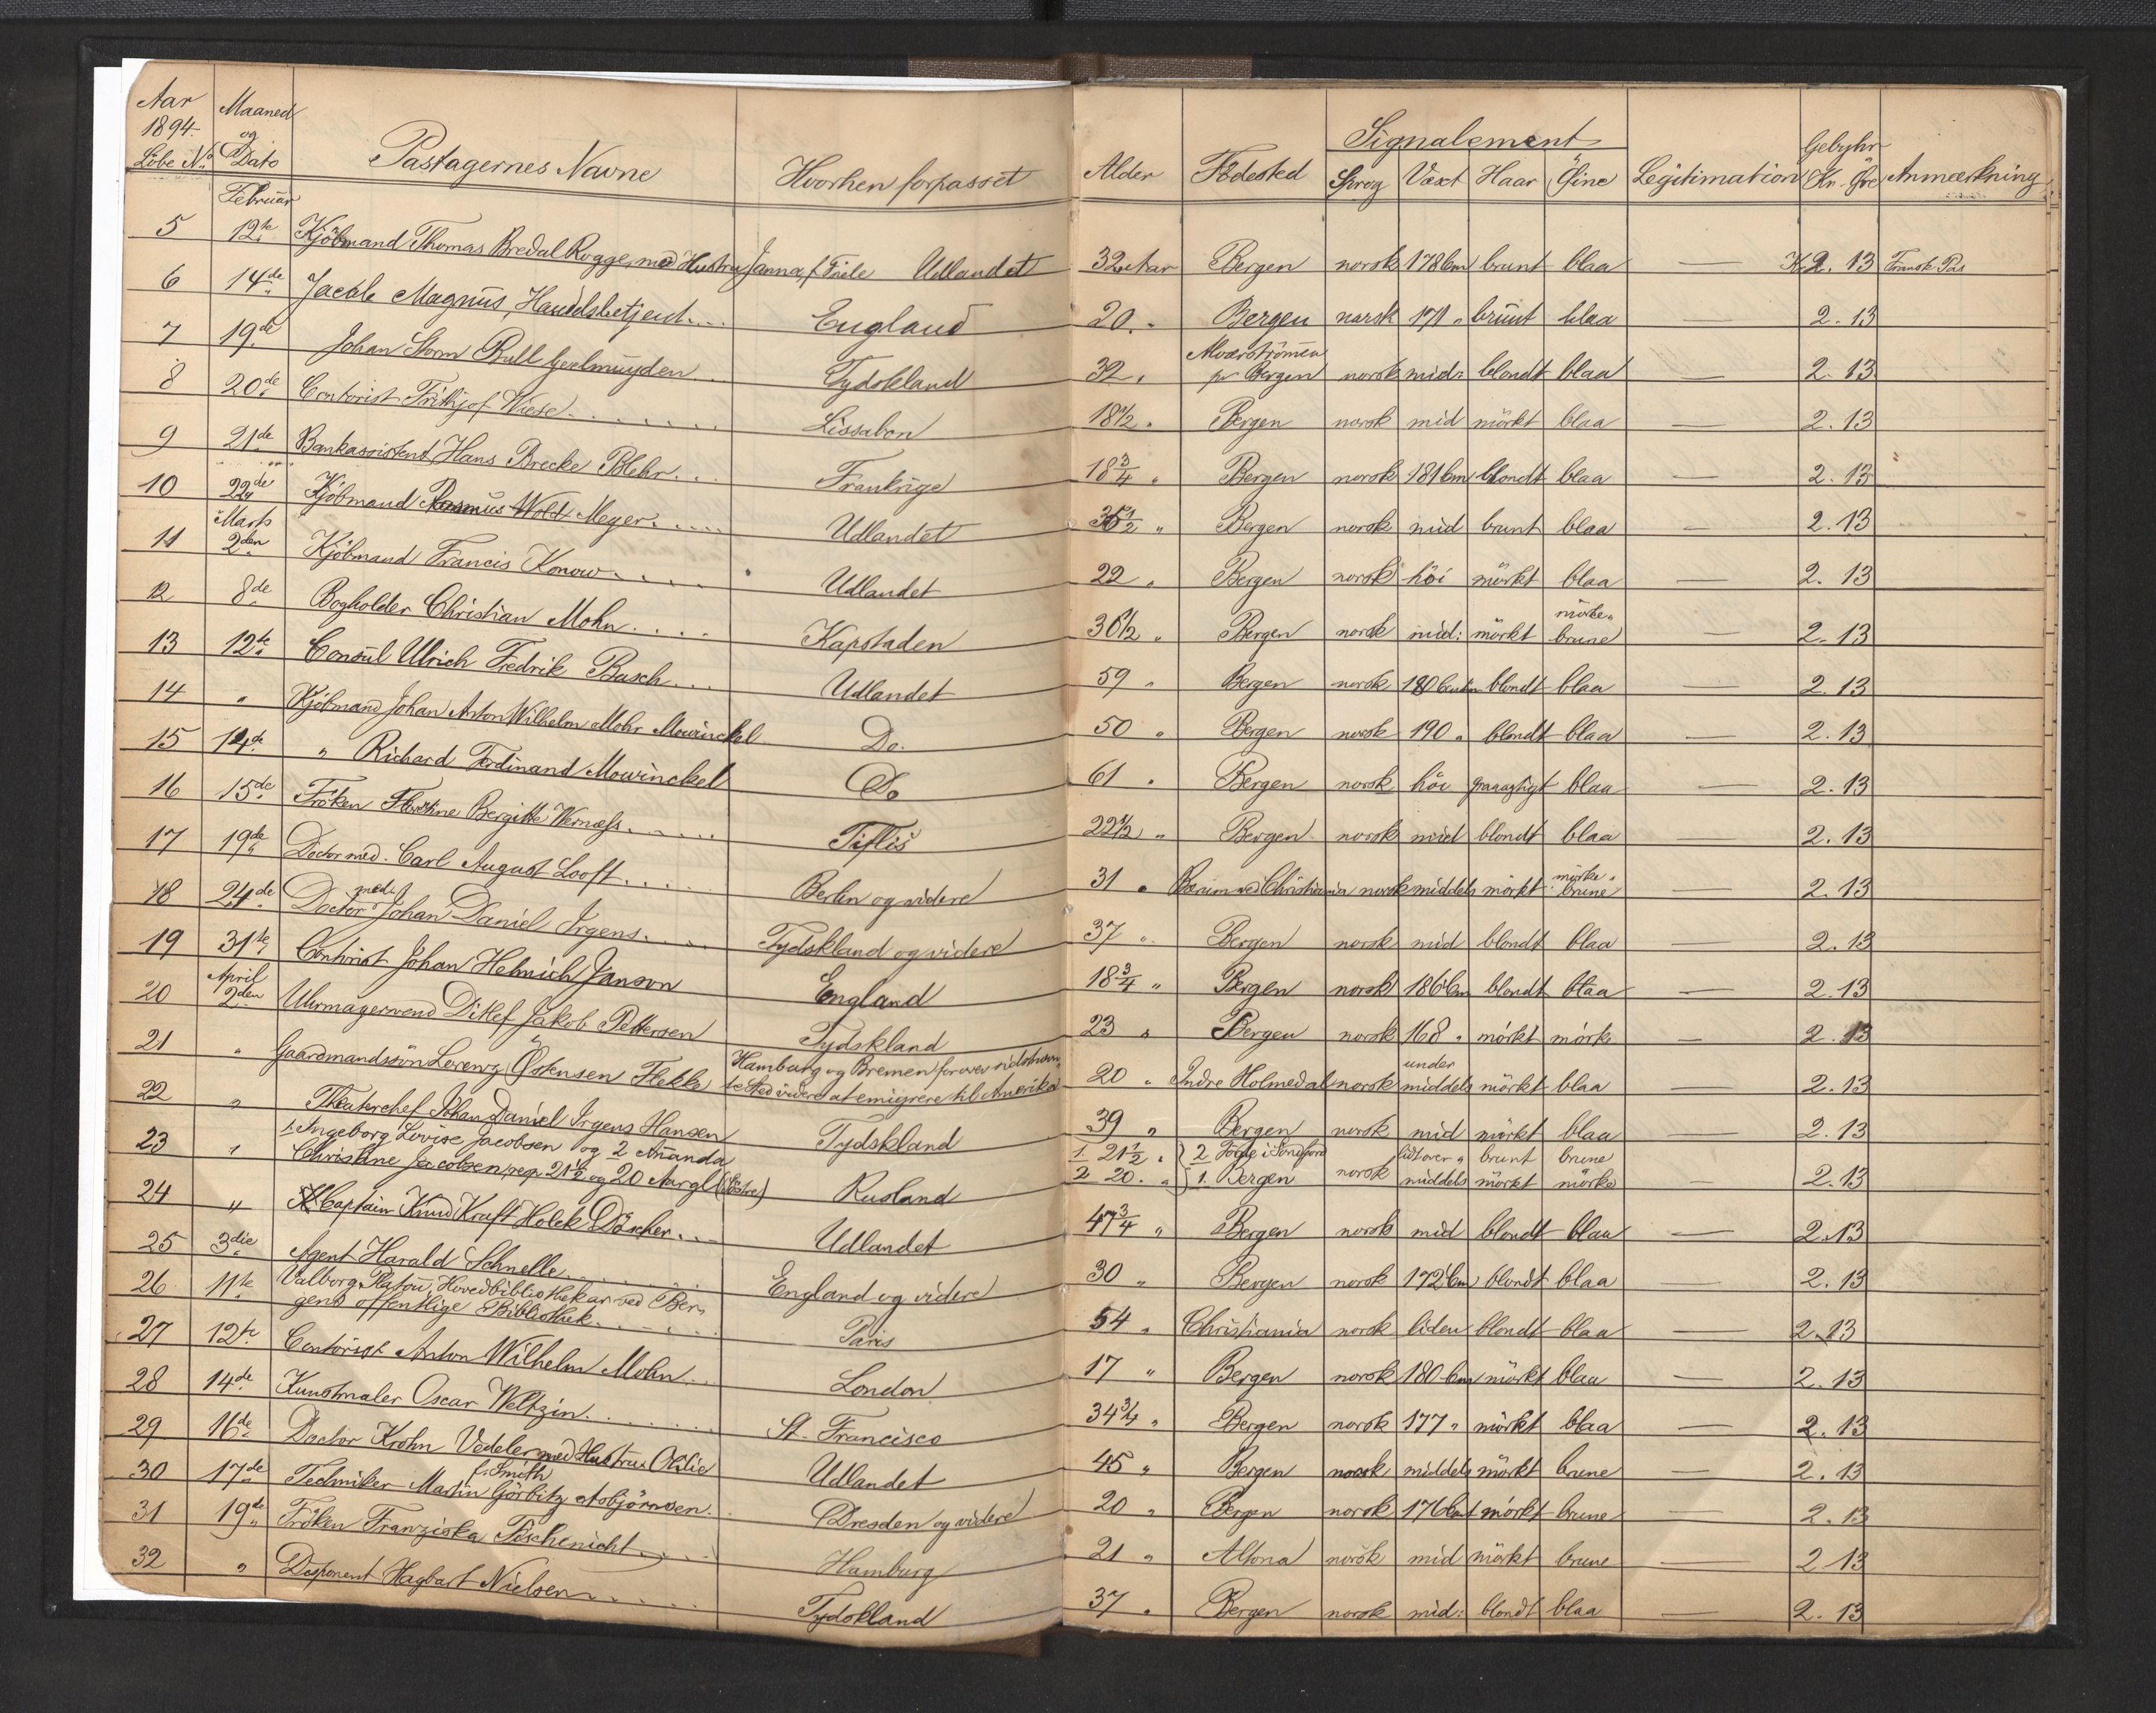 Aar 1894. Löbe No. Maaned og Dato Passagernes Navne Hvorhen forpasset Alder Födested Signalement Sprog Væxt Haar Öine Legitimation Gebyhr Kr. Öre Anmærkning
Februar
5 12te Kjöbmand Thomas Bredal Rogge, med Hustru Janna, f. Friele Udlandet 32 Aar Bergen norsk 178 Cm brunt blaa — K 2. 13 Fransk Pas
6 14de Jacob Magnus, Handelsbetjent.... England 20 " Bergen norsk 171 " brunt blaa — 2. 13
7 19de Johan Storm Bull Geelmuyden... Tydskland 32 " Alværströmmen pr Bergen norsk mid: blondt blaa — 2. 13
8 20de Contorist Frithjof Wiese....... Lissabon 18 1/2 " Bergen norsk mid mörkt blaa — 2. 13
9 21de Bankassistent Hans Brecke Blehr... Frankrige 18 3/4 " Bergen norsk 181 Cm blondt blaa — 2. 13
10 22de Kjöbmand Rasmus Wold Meyer..... Udlandet 35 1/2 " Bergen norsk mid brunt blaa — 2. 13
Marts
11 2den Kjöbmand Francis Konow..... Udlandet 22 " Bergen norsk höi mörkt blaa — 2. 13
12 8de Bogholder Christian Mohn.... Kapstaden 30 1/2 " Bergen norsk mid: mörkt mörke- brune — 2. 13
13 12te Consul Ulrich Fredrik Basch... Udlandet 59 " Bergen norsk 180 Centm blondt blaa — 2. 13
14 " Kjöbmand Johan Anton Wilhelm Mohr Mowinckel Do. 50 " Bergen norsk 190 " blondt blaa — 2. 13
15 14de " Richard Ferdinand Mowinckel Do 61 " Bergen norsk höi graaagtigt blaa — 2. 13
16 15de Fröken Bergitte Wernæss...... Tiflis 22 1/2 " Bergen norsk mid blondt blaa — 2. 13
17 19de Doctor med. Carl August Looft..... Berlin og videre 31 " Bærum ved Christiania norsk middels mörkt mörke- brune — 2. 13
18 24de Doctor med. Johan Daniel Irgens..... Tydskland og videre 37 " Bergen norsk mid blondt blaa — 2. 13
19 31te Contorist Johan Helmich Janson England 18 3/4 " Bergen norsk 186 Cm blondt blaa — 2. 13
April
20 2den Uhrmagersvend Ditlef Jakob Pettersen Tydskland 23 " Bergen norsk 168 " mörkt mörke — 2. 13
21 " Gaardmandssön Lorenz Östensen Flekke Hamburg og Bremen for over sidstnævn- te Sted videre at emigrere til Amerika 20 " Indre Holmedal norsk under middels mörkt blaa — 2. 13
22 " Theaterchef Johan Daniel Irgens Hansen Tydskland 39 " Bergen norsk mid mörkt blaa — 2. 13
23 " 1. Ingeborg Lovise Jacobsen og 2 Ananda 1. 21 1/2 " 2 Förde i Söndfjord lidt over " brunt brune
Christine Jacobsen, resp. 21 1/2 og 20 Aar gl. (Söstre) Rusland 2 20. " 1. Bergen norsk middels mörkt mörke — 2. 13
24 " Captain Knud Kraft Holck Döscher... Udlandet 47 3/4 " Bergen norsk mid blondt blaa — 2. 13
25 3die Agent Harald Schnelle........ England og videre 30 " Bergen norsk 172 Cm blondt blaa — 2. 13
26 11te Valborg Platou, Hovedbibliothekar ved Ber-
gens offentlige Bibliothek...... Paris 54 " Christiania norsk liden blondt blaa — 2. 13
27 12te Contorist Anton Wilhelm Mohn... London 17 " Bergen norsk 180 Cm mörkt blaa — 2. 13
28 14de Kunstmaler Oscar Weltzin....... St. Francisco 34 3/4 " Bergen norsk 177 " mörkt blaa — 2. 13
29 16de Doctor Krohn Vedeler med Hustru Otilie f. Smith Udlandet 45 " Bergen norsk middels mörkt brune — 2. 13
30 17de Techniker Martin Görbitz Asbjörnsen. Dresden og videre 20 " Bergen norsk 176 Cent mörkt brune — 2. 13
31 19de Fröken Franziska Hamburg 21 " Altona norsk mid mörkt brune — 2 13
32 " Disponent Hagbart Nielsen...... Tydskland 37 " Bergen norsk mid: blondt blaa — 2. 13